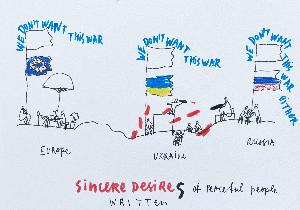 WE DON'T WANT THIS WAR
WE DON'T WANT THIS WAR
WE DON'T WANT THIS WAR EITHER
EUROPE
UKRAINE
RUSSIA
SINCERE DESIRES of peaceful people
WRITTEN